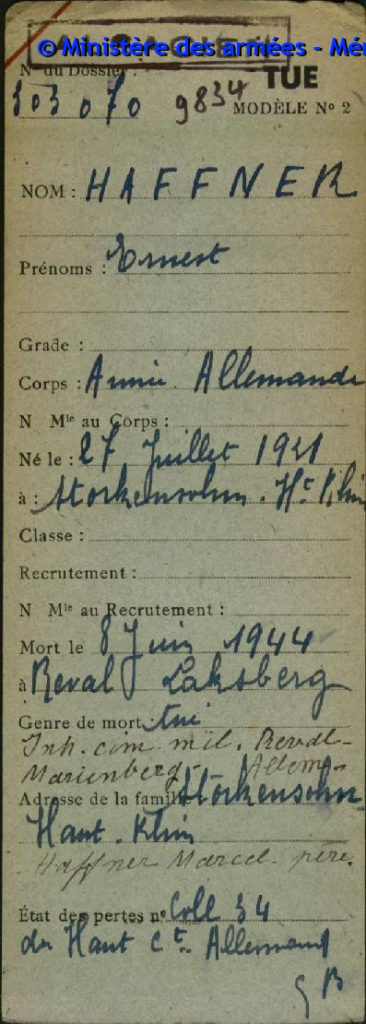 ALSACIEN
© Ministère des armées - Mé
N° du Dossier :
TUÉ
303 070 9834 MODÈLE N° 2
NOM : HAFFNER
Prénoms : Ernest
Grade :
Corps : Armée Allemande
N Mle au Corps :
Né le : 27 Juillet 1921
à : Storkensohn. Ht Rhin
Classe :
Recrutement :
N Mle au Recrutement :
Mort le 8 Juin 1944
à Reval Laksberg
Genre de mort : tué
Inh. cim. mil. Reval-
Marienberg - Allem.
Adresse de la famille Storkensohn
Haut. Rhin
Haffner Marcel. père.
État des pertes n° Coll 34
du Haut Ct. Allemand